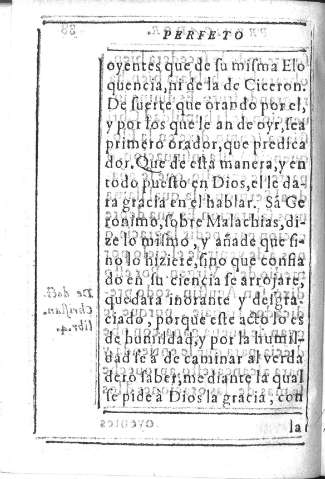 PERFETO
oyentes que de su misma Elo
quencia, ni de la de Ciceron.
De suerte que orando por el,
y por los que le an de oyr, sea
primero órador, que predica
dor. Que de esta manera, y en
todo puesto en Dios, el le da-
ra gracia en el hablar. Sã Ge
ronimo, sobre Malachias, di-
ze lo mismo, y añade que si-
no lo hiziere, sino que confia
do en su ciencia se arrojare,
quedara inorante y desgra-
ciado, porque este acto lo es
de humildad, y por la humil-
dad se à de caminar al verda
dero saber, mediante la qual
se pide à Dios la gracia, con
la